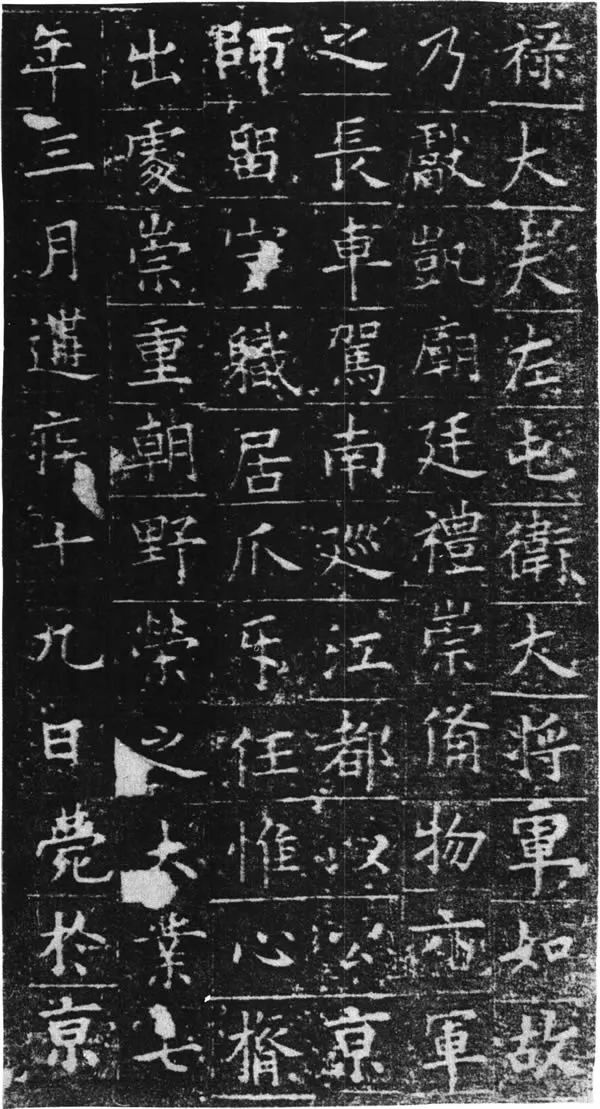 禄大夫左屯衛大將軍如故
乃獻凱廟廷禮崇備物亦軍
之長車駕南巡江都以公京
師留守職居爪牙任惟心膂
出處崇重朝野榮之大業七
年三月遘疾十九日薨於京